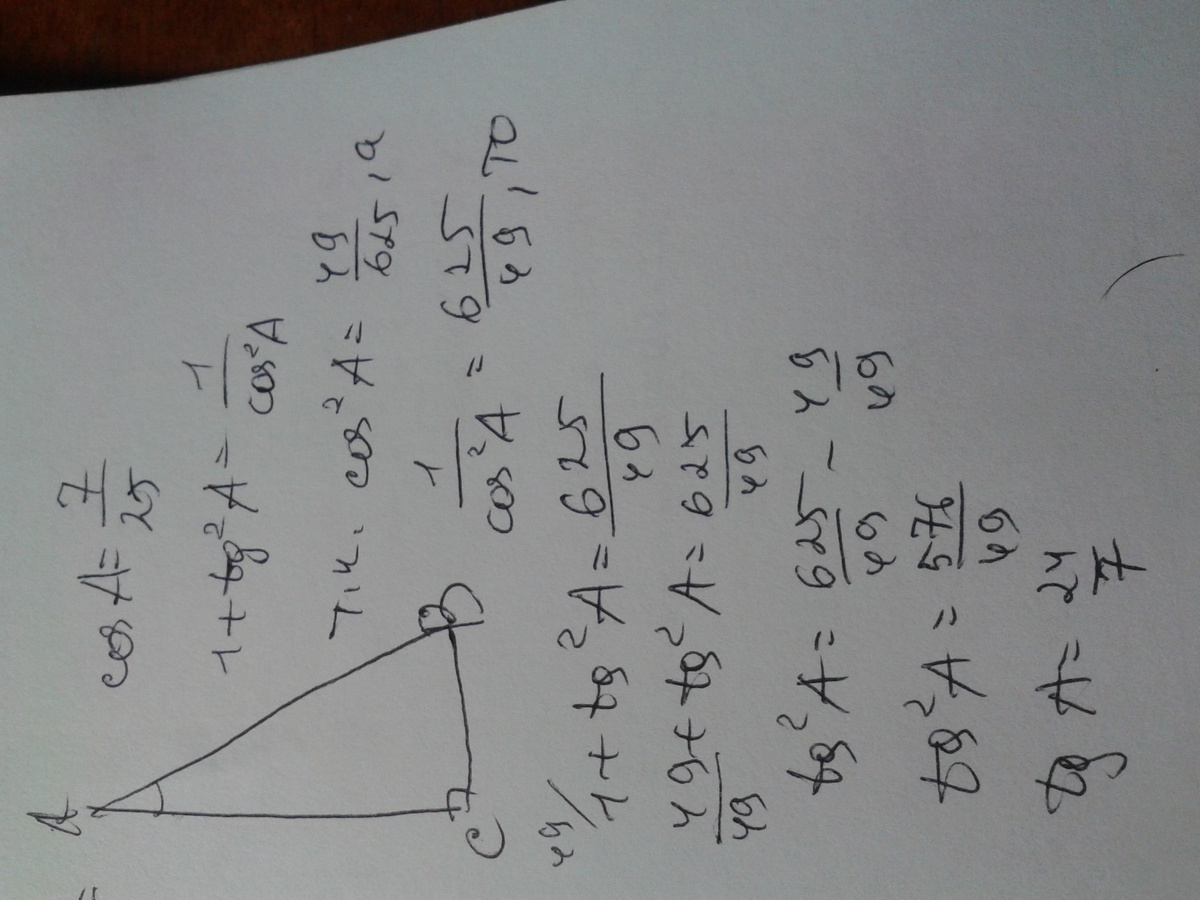 cos A = 7/25
1 + tg²A = 1/cos²A
т.к. cos²A = 49/625, а
1/cos²A = 625/49, то
A
C
B
49/ 1 + tg²A = 625/49
49/49 + tg²A = 625/49
tg²A = 625/49 - 49/49
tg²A = 576/49
tg A = 24/7